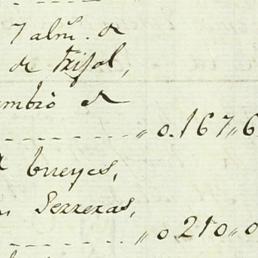 7 alm. de
de trijol,
ambió de
----- „ 0.167„6
bueyes,
Serreras,
----- „ 0210„0